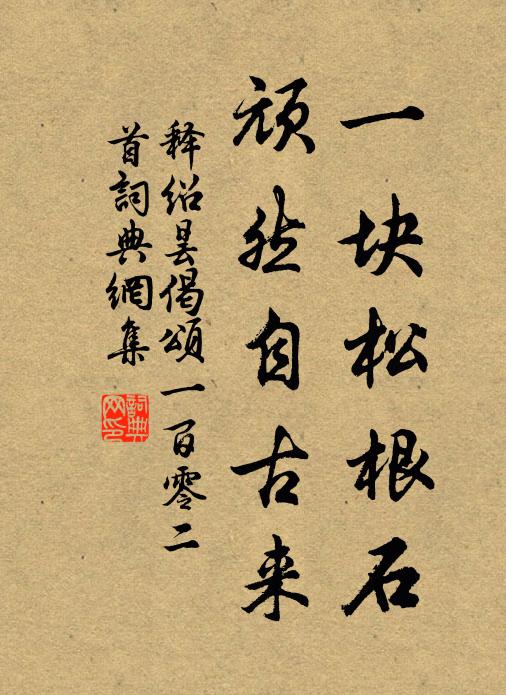 一块松根石
顽然自古来
释绍昙偈颂一百零二
首詞典網集
詞典
网印